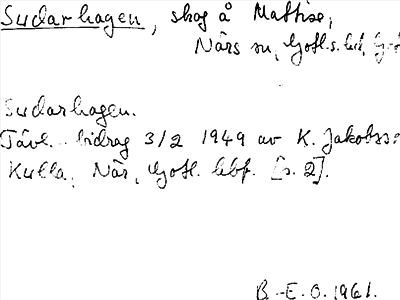 Sudarhagen, skog å Mattise,
Närs sn, Gotl. s. hd, Gotl.
Sudarhagen.
Tävl. bidrag 3/2 1949 av K. Jakobsso
Kulla, När, Gotl. hbf. [s. 2].
B.-E.O. 1961.